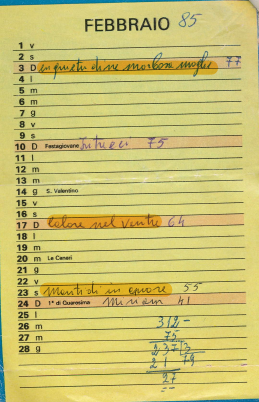 FEBBRAIO 85
1 v
2 s
3 D inquietudine morbosa moglie 77
4 l
5 m
6 m
7 g
8 v
9 s
10 D Festagiovane Intrusi 75
11 l
12 m
13 m
14 g S. Valentino
15 v
16 s
17 D Calore nel ventre 64
18 l
19 m
20 m Le Ceneri
21 g
22 v
23 s Mariti di in amore 55
24 D 1ª di Quaresima Miriam 41
25 l
26 m 312-
27 m 75
28 g 237 3
21 79
27